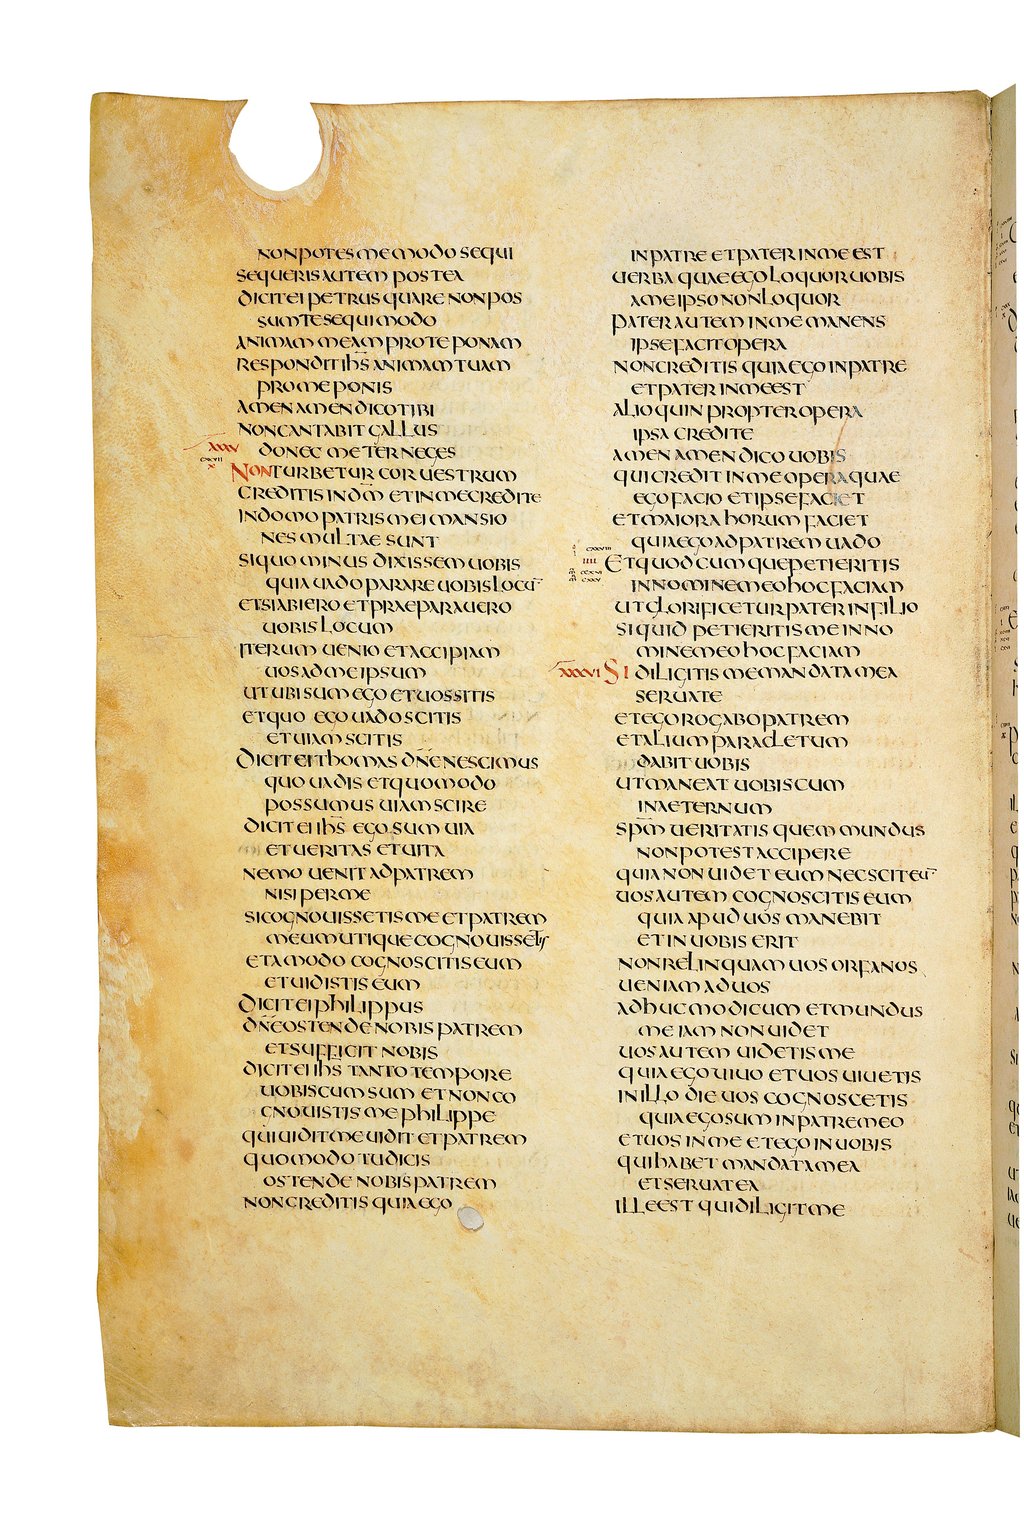 NON POTES ME MODO SEQUI
SEQUERIS AUTEM POSTEA
DICIT EI PETRUS QUARE NON POS
SUM TE SEQUI MODO
ANIMAM MEAM PRO TE PONAM
RESPONDIT IHS̄ ANIMAM TUAM
PRO ME PONIS
AMEN AMEN DICO TIBI
NON CANTABIT GALLUS
XXXV DONEC ME TER NEGES
NON TURBETUR COR UESTRUM
CREDITIS IN DM̄ ET IN ME CREDITE
IN DOMO PATRIS MEI MANSIO
NES MULTAE SUNT
SI QUO MINUS DIXISSEM UOBIS
QUIA UADO PARARE UOBIS LOCŪ
ET SI ABIERO ET PRAEPARAUERO
UOBIS LOCUM
ITERUM UENIO ET ACCIPIAM
UOS AD ME IPSUM
UT UBI SUM EGO ET UOS SITIS
ET QUO EGO UADO SCITIS
ET UIAM SCITIS
DICIT EI THOMAS DN̄E NESCIMUS
QUO UADIS ET QUOMODO
POSSUMUS UIAM SCIRE
DICIT EI IHS̄ EGO SUM UIA
ET UERITAS ET UITA
NEMO UENIT AD PATREM
NISI PER ME
SI COGNOUISSETIS ME ET PATREM
MEUM UTIQUE COGNOUISSETIS
ET AMODO COGNOSCITIS EUM
ET UIDISTIS EUM
DICIT EI PHILIPPUS
DN̄E OSTENDE NOBIS PATREM
ET SUFFICIT NOBIS
DICIT EI IHS̄ TANTO TEMPORE
UOBISCUM SUM ET NON CO
GNOUISTIS ME PHILIPPE
QUI UIDIT ME UIDIT ET PATREM
QUOMODO TU DICIS
OSTENDE NOBIS PATREM
NON CREDITIS QUIA EGO
IN PATRE ET PATER IN ME EST
UERBA QUAE EGO LOQUOR UOBIS
A ME IPSO NON LOQUOR
PATER AUTEM IN ME MANENS
IPSE FACIT OPERA
NON CREDITIS QUIA EGO IN PATRE
ET PATER IN ME EST
ALIOQUIN PROPTER OPERA
IPSA CREDITE
AMEN AMEN DICO UOBIS
QUI CREDIT IN ME OPERA QUAE
EGO FACIO ET IPSE FACIET
ET MAIORA HORUM FACIET
QUIA EGO AD PATREM UADO
ET QUODCUMQUE PETIERITIS
IN NOMINE MEO HOC FACIAM
UT GLORIFICETUR PATER IN FILIO
SI QUID PETIERITIS ME IN NO
MINE MEO HOC FACIAM
XXXVI SI DILIGITIS ME MANDATA MEA
SERUATE
ET EGO ROGABO PATREM
ET ALIUM PARACLETUM
DABIT UOBIS
UT MANEAT UOBISCUM
IN AETERNUM
SPM̄ UERITATIS QUEM MUNDUS
NON POTEST ACCIPERE
QUIA NON UIDET EUM NEC SCIT EŪ
UOS AUTEM COGNOSCITIS EUM
QUIA APUD UOS MANEBIT
ET IN UOBIS ERIT
NON RELINQUAM UOS ORFANOS
UENIAM AD UOS
ADHUC MODICUM ET MUNDUS
ME IAM NON UIDET
UOS AUTEM UIDETIS ME
QUIA EGO UIUO ET UOS UIUETIS
IN ILLO DIE UOS COGNOSCETIS
QUIA EGO SUM IN PATRE MEO
ET UOS IN ME ET EGO IN UOBIS
QUI HABET MANDATA MEA
ET SERUAT EA
ILLE EST QUI DILIGIT ME